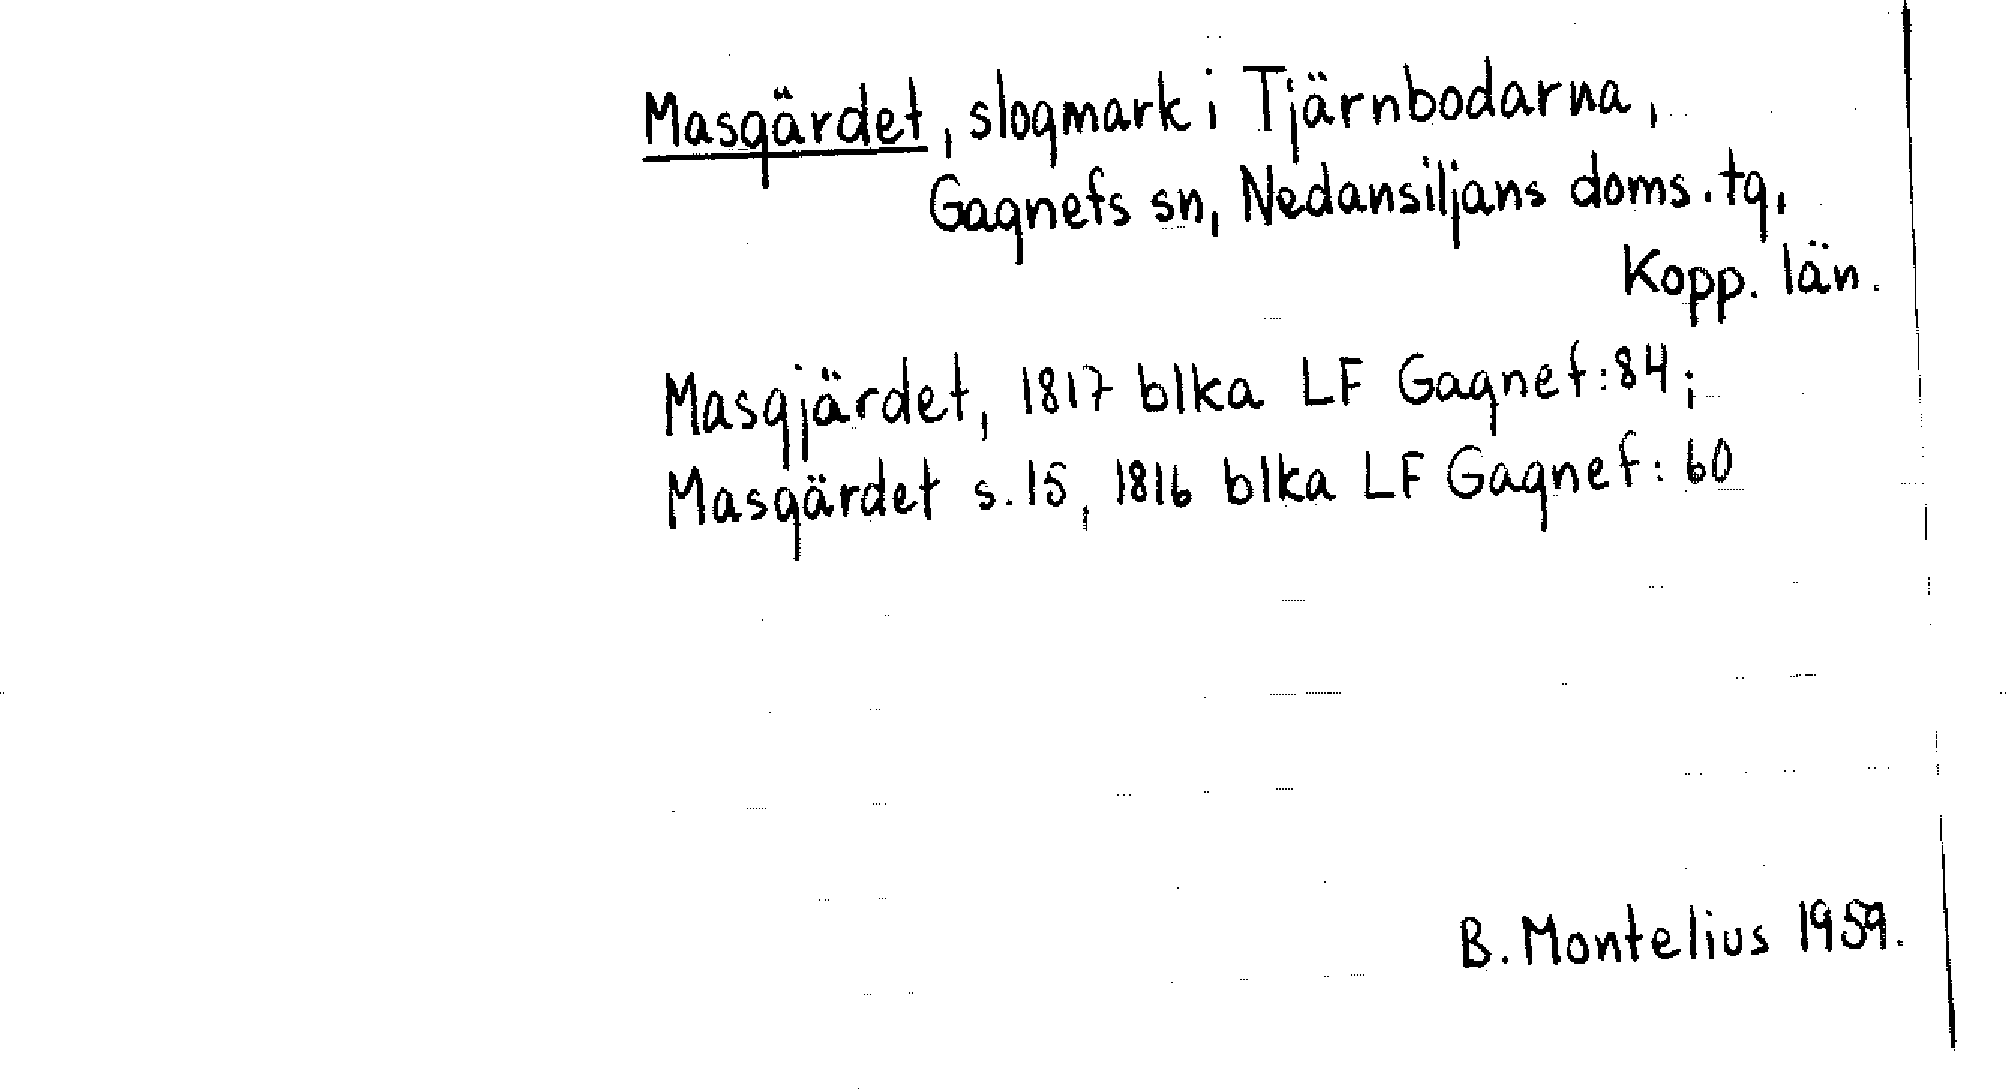 Masgärdet, slogmark i Tjärnbodarna,
Gagnefs sn, Nedansiljans doms. tg,
Kopp. län.
Masgjärdet, 1817 blka LF Gagnef: 84;
Masgärdet s. 15, 1816 blka LF Gagnef: 60
B. Montelius 1959.